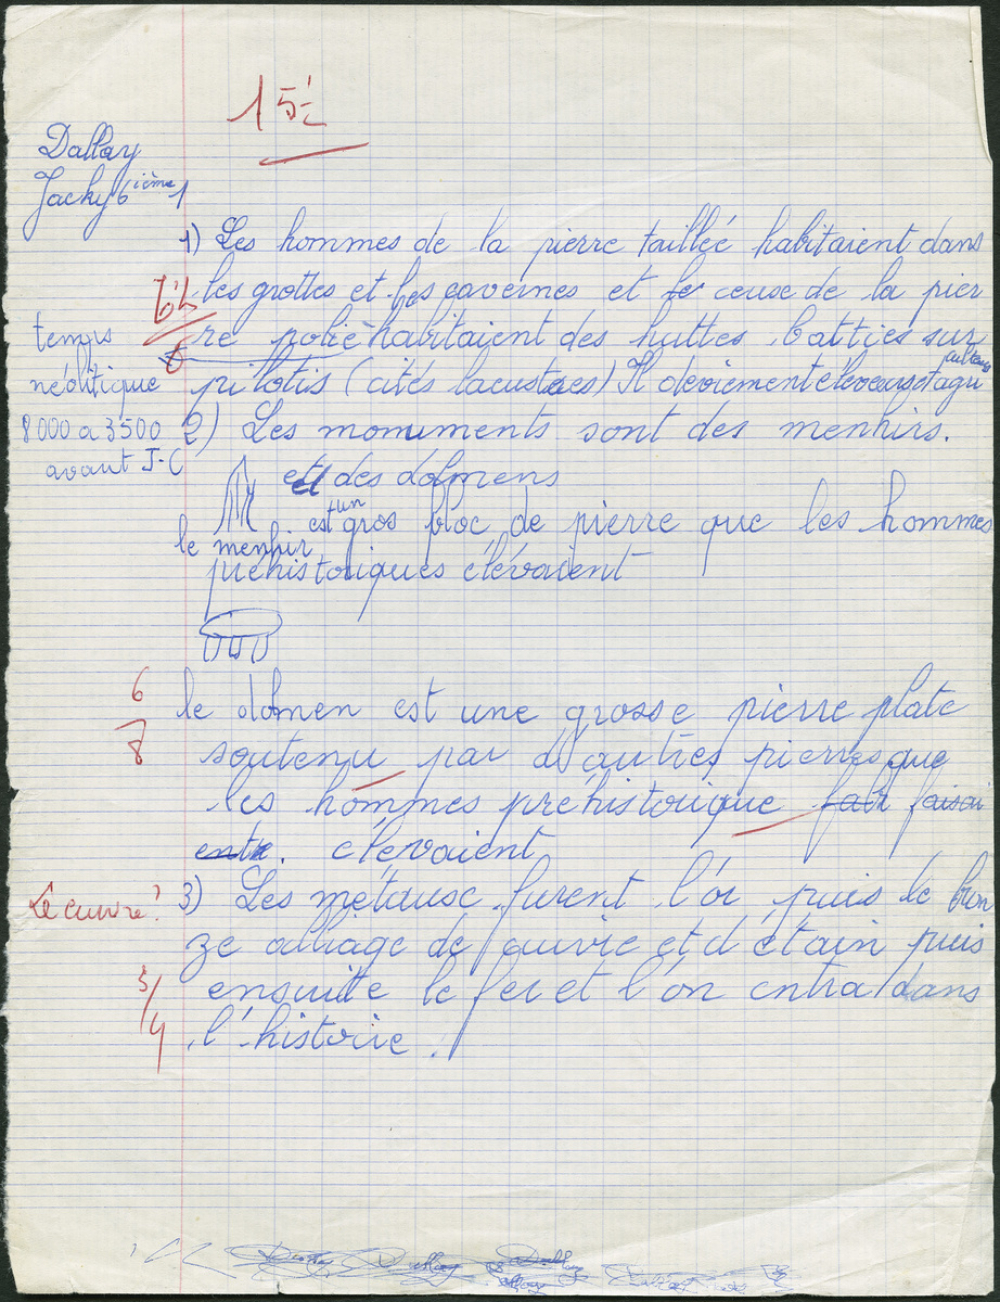 15 ½
Dallay
Jacky 6ième 1
1) Les hommes de la pierre taillée habitaient dans
6 ½
8
les grottes et les cavernes et ceuse de la pier
re polie habitaient des huttes batties sur
pilotis (cités lacustres) Il devienent éleveurs et agri
culteurs
temps
néolitique
8000 a 3500
avant J-C
2) Les monuments sont des menhirs.
et des dolmens
le menhir est un gros bloc de pierre que les hommes
préhistoriques élévaient
6
8
le dolmen est une grosse pierre plate
soutenu par d'autres pierres que
les hommes préhistorique fair faisai
ent. élevaient
Le cuivre?
3) Les métause furent l'or puis le bron
ze alliage de cuivre et d'étain puis
3/4
ensuite le fer et l'on entra dans
l'histoire.